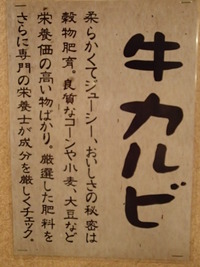 牛カルビ
柔らかくてジューシー、おいしさの秘密は
穀物肥育。良質なコーンや小麦、大豆など
栄養価の高い物ばかり。厳選した肥料を
さらに専門の栄養士が成分を厳しくチェック。